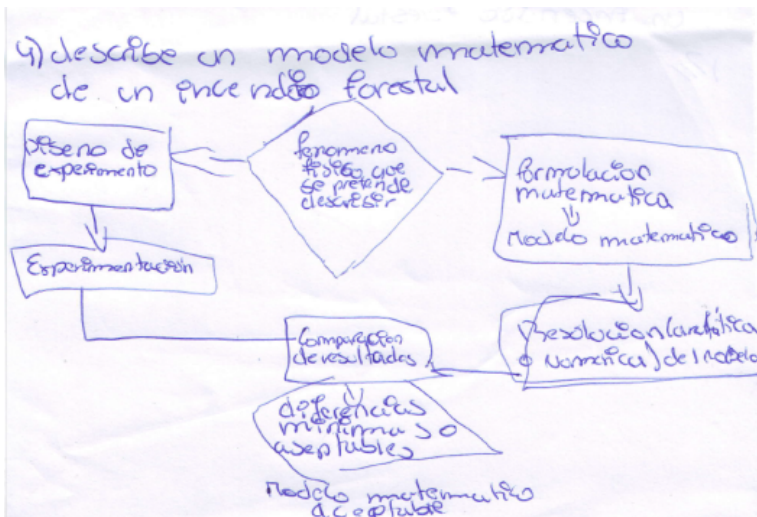 4) describe un modelo matematico
de un incendio forestal
Diseño de
experimento
fenomeno
fisico que
se pretende
describir
formulacion
matematica
Modelo matematico
Experimentación
Comparacion
de resultados
Resolucion (analítica
o numerica) del modelo
diferencias
minimas o
aseptables
Modelo matematico
aceptable